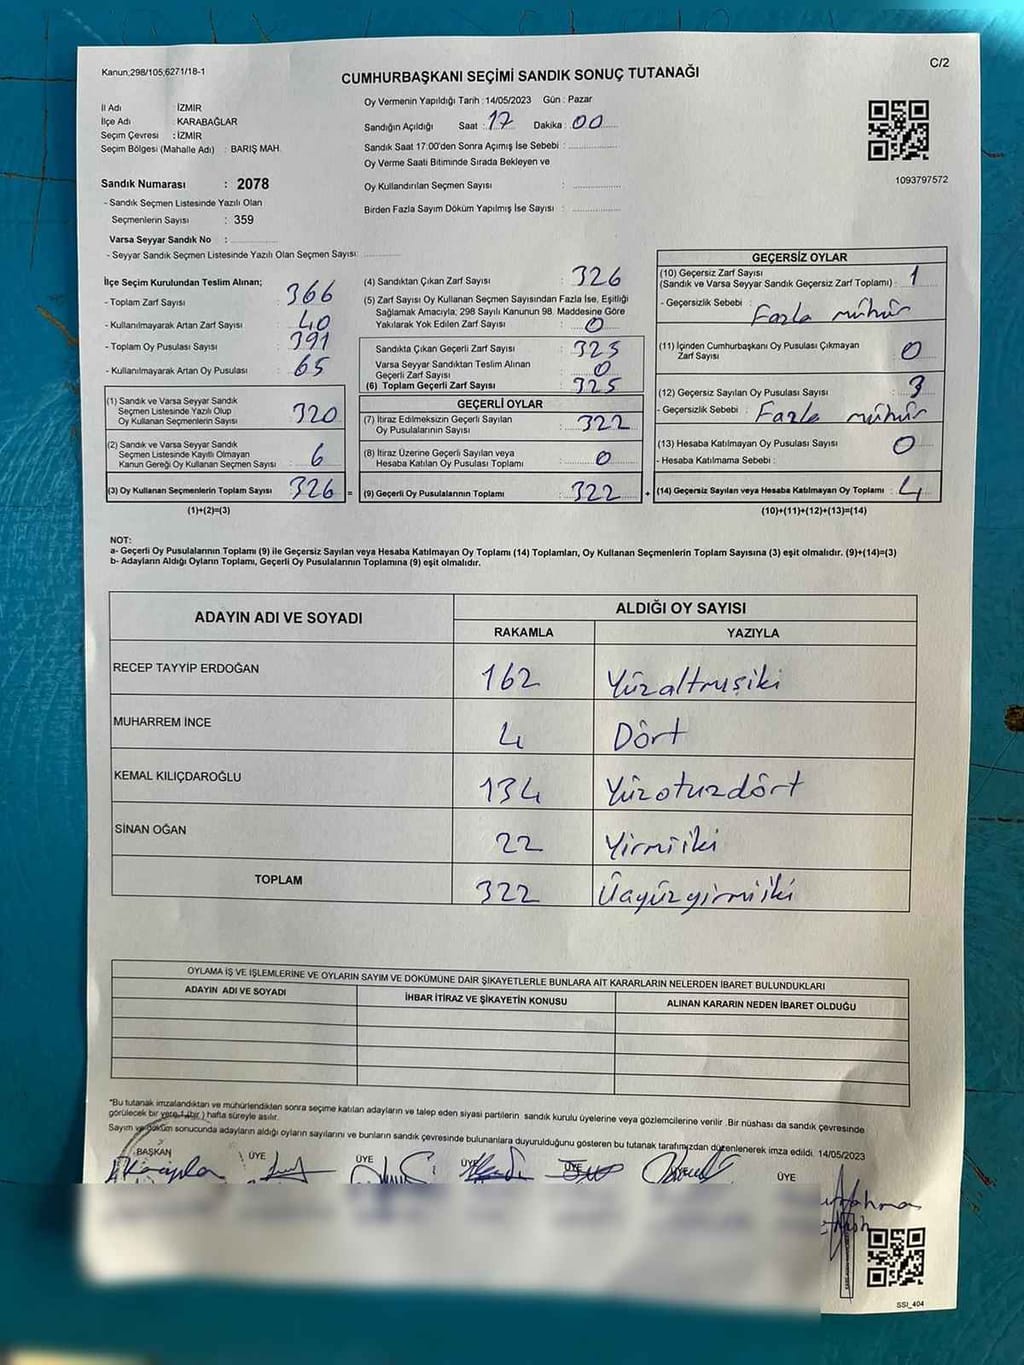 Kanun,298/105,6271/18-1
C/2
CUMHURBAŞKANI SEÇİMİ SANDIK SONUÇ TUTANAĞI
İl Adı : İZMİR
İlçe Adı : KARABAĞLAR
Seçim Çevresi : İZMİR
Seçim Bölgesi (Mahalle Adı) : BARIŞ MAH.
Sandık Numarası : 2078
- Sandık Seçmen Listesinde Yazılı Olan
Seçmenlerin Sayısı : 359
Varsa Seyyar Sandık No :
- Seyyar Sandık Seçmen Listesinde Yazılı Olan Seçmen Sayısı:
Oy Vermenin Yapıldığı Tarih :14/05/2023 Gün : Pazar
Sandığın Açıldığı Saat : 17 Dakika : 00
Sandık Saat 17:00'den Sonra Açımış İse Sebebi :
Oy Verme Saati Bitiminde Sırada Bekleyen ve
Oy Kullandırılan Seçmen Sayısı :
Birden Fazla Sayım Döküm Yapılmış İse Sayısı :
1093797572
İlçe Seçim Kurulundan Teslim Alınan;
- Toplam Zarf Sayısı : 366
- Kullanılmayarak Artan Zarf Sayısı : 40
- Toplam Oy Pusulası Sayısı : 391
- Kullanılmayarak Artan Oy Pusulası : 65
(1) Sandık ve Varsa Seyyar Sandık
Seçmen Listesinde Yazılı Olup
Oy Kullanan Seçmenlerin Sayısı : 320
(2) Sandık ve Varsa Seyyar Sandık
Seçmen Listesinde Kayıtlı Olmayan
Kanun Gereği Oy Kullanan Seçmen Sayısı : 6
(3) Oy Kullanan Seçmenlerin Toplam Sayısı : 326 =
(1)+(2)=(3)
(4) Sandıktan Çıkan Zarf Sayısı : 326
(5) Zarf Sayısı Oy Kullanan Seçmen Sayısından Fazla İse, Eşitliği
Sağlamak Amacıyla; 298 Sayılı Kanunun 98. Maddesine Göre
Yakılarak Yok Edilen Zarf Sayısı : 0
Sandıkta Çıkan Geçerli Zarf Sayısı : 325
Varsa Seyyar Sandıktan Teslim Alınan
Geçerli Zarf Sayısı : 0
(6) Toplam Geçerli Zarf Sayısı : 325
GEÇERLİ OYLAR
(7) İtiraz Edilmeksizin Geçerli Sayılan
Oy Pusulalarının Sayısı : 322
(8) İtiraz Üzerine Geçerli Sayılan veya
Hesaba Katılan Oy Pusulası Toplamı : 0
(9) Geçerli Oy Pusulalarının Toplamı : 322 +
GEÇERSİZ OYLAR
(10) Geçersiz Zarf Sayısı
(Sandık ve Varsa Seyyar Sandık Geçersiz Zarf Toplamı) : 1
- Geçersizlik Sebebi : Fazla mühür
(11) İçinden Cumhurbaşkanı Oy Pusulası Çıkmayan
Zarf Sayısı : 0
(12) Geçersiz Sayılan Oy Pusulası Sayısı : 3
- Geçersizlik Sebebi : Fazla mühür
(13) Hesaba Katılmayan Oy Pusulası Sayısı : 0
- Hesaba Katılmama Sebebi :
(14) Geçersiz Sayılan veya Hesaba Katılmayan Oy Toplamı : 4
(10)+(11)+(12)+(13)=(14)
NOT:
a- Geçerli Oy Pusulalarının Toplamı (9) ile Geçersiz Sayılan veya Hesaba Katılmayan Oy Toplamı (14) Toplamları, Oy Kullanan Seçmenlerin Toplam Sayısına (3) eşit olmalıdır. (9)+(14)=(3)
b- Adayların Aldığı Oyların Toplamı, Geçerli Oy Pusulalarının Toplamına (9) eşit olmalıdır.
ADAYIN ADI VE SOYADI
ALDIĞI OY SAYISI
RAKAMLA YAZIYLA
RECEP TAYYİP ERDOĞAN 162 Yüzaltmışiki
MUHARREM İNCE 4 Dört
KEMAL KILIÇDAROĞLU 134 Yüzotuzdört
SİNAN OĞAN 22 Yirmiiki
TOPLAM 322 Üçyüzyirmiiki
OYLAMA İŞ VE İŞLEMLERİNE VE OYLARIN SAYIM VE DÖKÜMÜNE DAİR ŞİKAYETLERLE BUNLARA AİT KARARLARIN NELERDEN İBARET BULUNDUKLARI
ADAYIN ADI VE SOYADI İHBAR İTİRAZ VE ŞİKAYETİN KONUSU ALINAN KARARIN NEDEN İBARET OLDUĞU
*Bu tutanak imzalandıktan ve mühürlendikten sonra seçime katılan adayların ve talep eden siyasi partilerin sandık kurulu üyelerine veya gözlemcilerine verilir .Bir nüshası da sandık çevresinde
görülecek bir yere 1 (bir ) hafta süreyle asılır.
Sayım ve döküm sonucunda adayların aldığı oyların sayılarını ve bunların sandık çevresinde bulunanlara duyurulduğunu gösteren bu tutanak tarafımızdan düzenlenerek imza edildi. 14/05/2023
BAŞKAN ÜYE ÜYE ÜYE ÜYE ÜYE
SSI_404